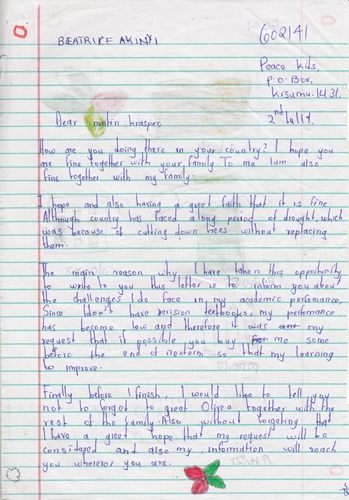 BEATRICE AKINYI
602141
Peace Kids,
P.O. Box,
Kisumu.
Dear martin krasper,
How are you doing there in your country? I hope you
are fine together with your family To me Iam also
fine together with my family
I hope and also having a great faith that it is fine
Although country has faced along period of drought, which
was because of cutting down trees without replacing
them.
The main reason why I have taken this opportunity
to write to you this letter is to inform you about
the challenges I do face in my academic performance,
Since I don't have revision textbooks, my perfomance
has become low and therefore it was my
request that if possible you buy me some
before the end of so that my learning
to improve.
Finally before I finish, I would like to tell you
not to forget to greet together with the
rest of the family. Also without forgeting that
I have a great hope that my request will be
considered and also my information will reach
you wherever you are.